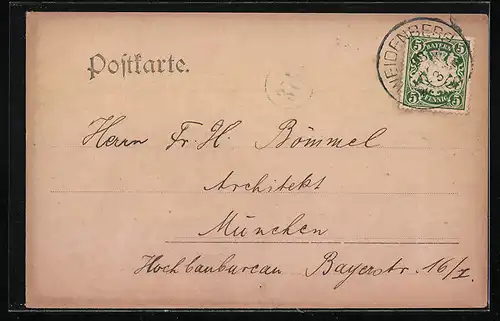 WEIDENBERG
BAYERN
5 5
PFENNIG
Postkarte.
37
Herrn Fr. H. Bömmel
Architekt
München
Hochbaubureau Bayerstr. 16/I.